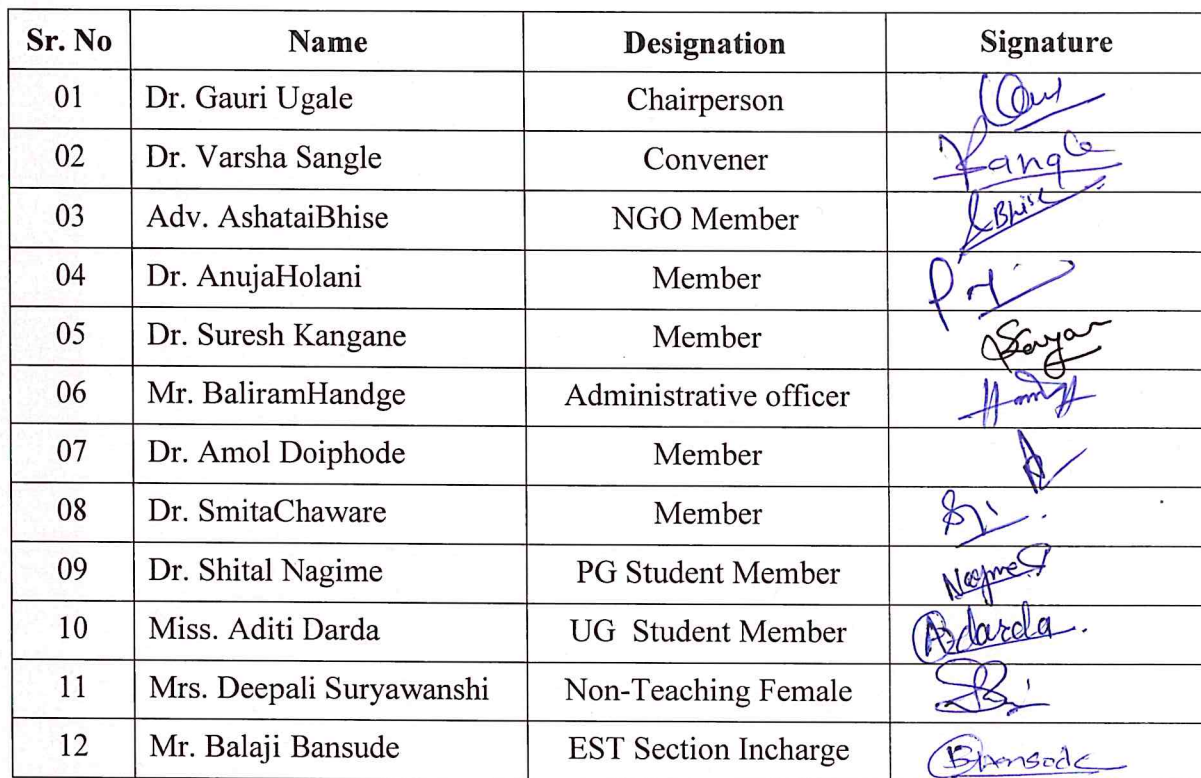 Sr. No Name Designation Signature
01 Dr. Gauri Ugale Chairperson
02 Dr. Varsha Sangle Convener
03 Adv. AshataiBhise NGO Member Bhise
04 Dr. AnujaHolani Member
05 Dr. Suresh Kangane Member
06 Mr. BaliramHandge Administrative officer
07 Dr. Amol Doiphode Member
08 Dr. SmitaChaware Member
09 Dr. Shital Nagime PG Student Member
10 Miss. Aditi Darda UG Student Member Adarda.
11 Mrs. Deepali Suryawanshi Non-Teaching Female
12 Mr. Balaji Bansude EST Section Incharge